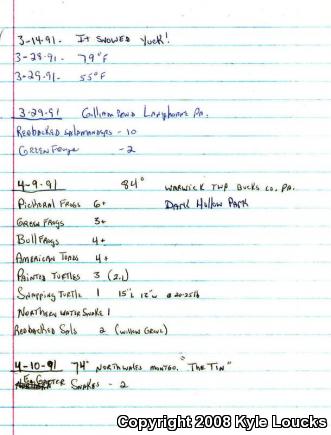 3-14-91- It snowed Yuck!
3-28-91- 79°F
3-29-91- 55°F
3-29-91 Gilliam Pond Langhorne Pa.
Redbacked Salamanders - 10
Green Frogs - 2
4-9-91 84° Warwick Twp Bucks Co, Pa.
Pickeral Frogs 6+ Dark Hollow Park
Green Frogs 3+
Bull Frogs 4+
American Toads 4+
Painted Turtles 3 (2.1)
Snapping Turtle 1 15"L 12"W @ 20-25lb
Northern Water Snake 1
Redbacked Sals 2 (Willow Grove)
4-10-91 74° North Wales Montgo. "The Tin"
Garter Snakes - 2
Copyright 2008 Kyle Loucks